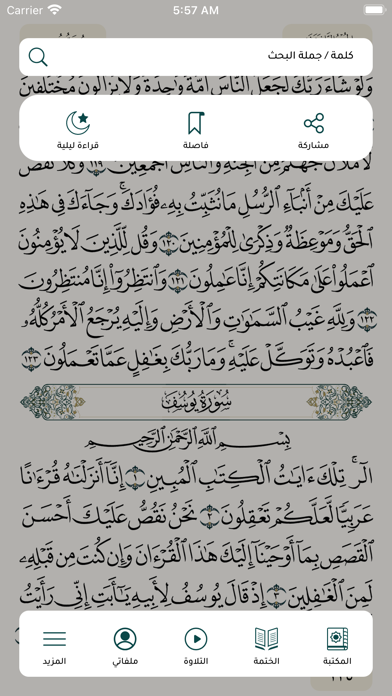 Carrier 5:57 AM
كلمة / جملة البحث
وَلَوْ شَآءَ رَبُّكَ لَجَعَلَ ٱلنَّاسَ أُمَّةً وَٰحِدَةً وَلَا يَزَالُونَ مُخْتَلِفِينَ
مشاركة فاصلة قراءة ليلية
لَأَمْلَأَنَّ جَهَنَّمَ مِنَ ٱلْجِنَّةِ وَٱلنَّاسِ أَجْمَعِينَ ١١٩ وَكُلًّا نَّقُصُّ
عَلَيْكَ مِنْ أَنۢبَآءِ ٱلرُّسُلِ مَا نُثَبِّتُ بِهِۦ فُؤَادَكَ ۚ وَجَآءَكَ فِى هَٰذِهِ
ٱلْحَقُّ وَمَوْعِظَةٌ وَذِكْرَىٰ لِلْمُؤْمِنِينَ ١٢٠ وَقُل لِّلَّذِينَ لَا يُؤْمِنُونَ
ٱعْمَلُوا۟ عَلَىٰ مَكَانَتِكُمْ إِنَّا عَٰمِلُونَ ١٢١ وَٱنتَظِرُوٓا۟ إِنَّا مُنتَظِرُونَ
١٢٢ وَلِلَّهِ غَيْبُ ٱلسَّمَٰوَٰتِ وَٱلْأَرْضِ وَإِلَيْهِ يُرْجَعُ ٱلْأَمْرُ كُلُّهُۥ
فَٱعْبُدْهُ وَتَوَكَّلْ عَلَيْهِ ۚ وَمَا رَبُّكَ بِغَٰفِلٍ عَمَّا تَعْمَلُونَ ١٢٣
سُورَةُ يُوسُفَ
بِسْمِ ٱللَّهِ ٱلرَّحْمَٰنِ ٱلرَّحِيمِ
الٓر ۚ تِلْكَ ءَايَٰتُ ٱلْكِتَٰبِ ٱلْمُبِينِ ١ إِنَّآ أَنزَلْنَٰهُ قُرْءَٰنًا
عَرَبِيًّا لَّعَلَّكُمْ تَعْقِلُونَ ٢ نَحْنُ نَقُصُّ عَلَيْكَ أَحْسَنَ
ٱلْقَصَصِ بِمَآ أَوْحَيْنَآ إِلَيْكَ هَٰذَا ٱلْقُرْءَانَ وَإِن كُنتَ مِن قَبْلِهِۦ
لَمِنَ ٱلْغَٰفِلِينَ ٣ إِذْ قَالَ يُوسُفُ لِأَبِيهِ يَٰٓأَبَتِ إِنِّى رَأَيْتُ
المكتبة الختمة التلاوة ملفاتي المزيد